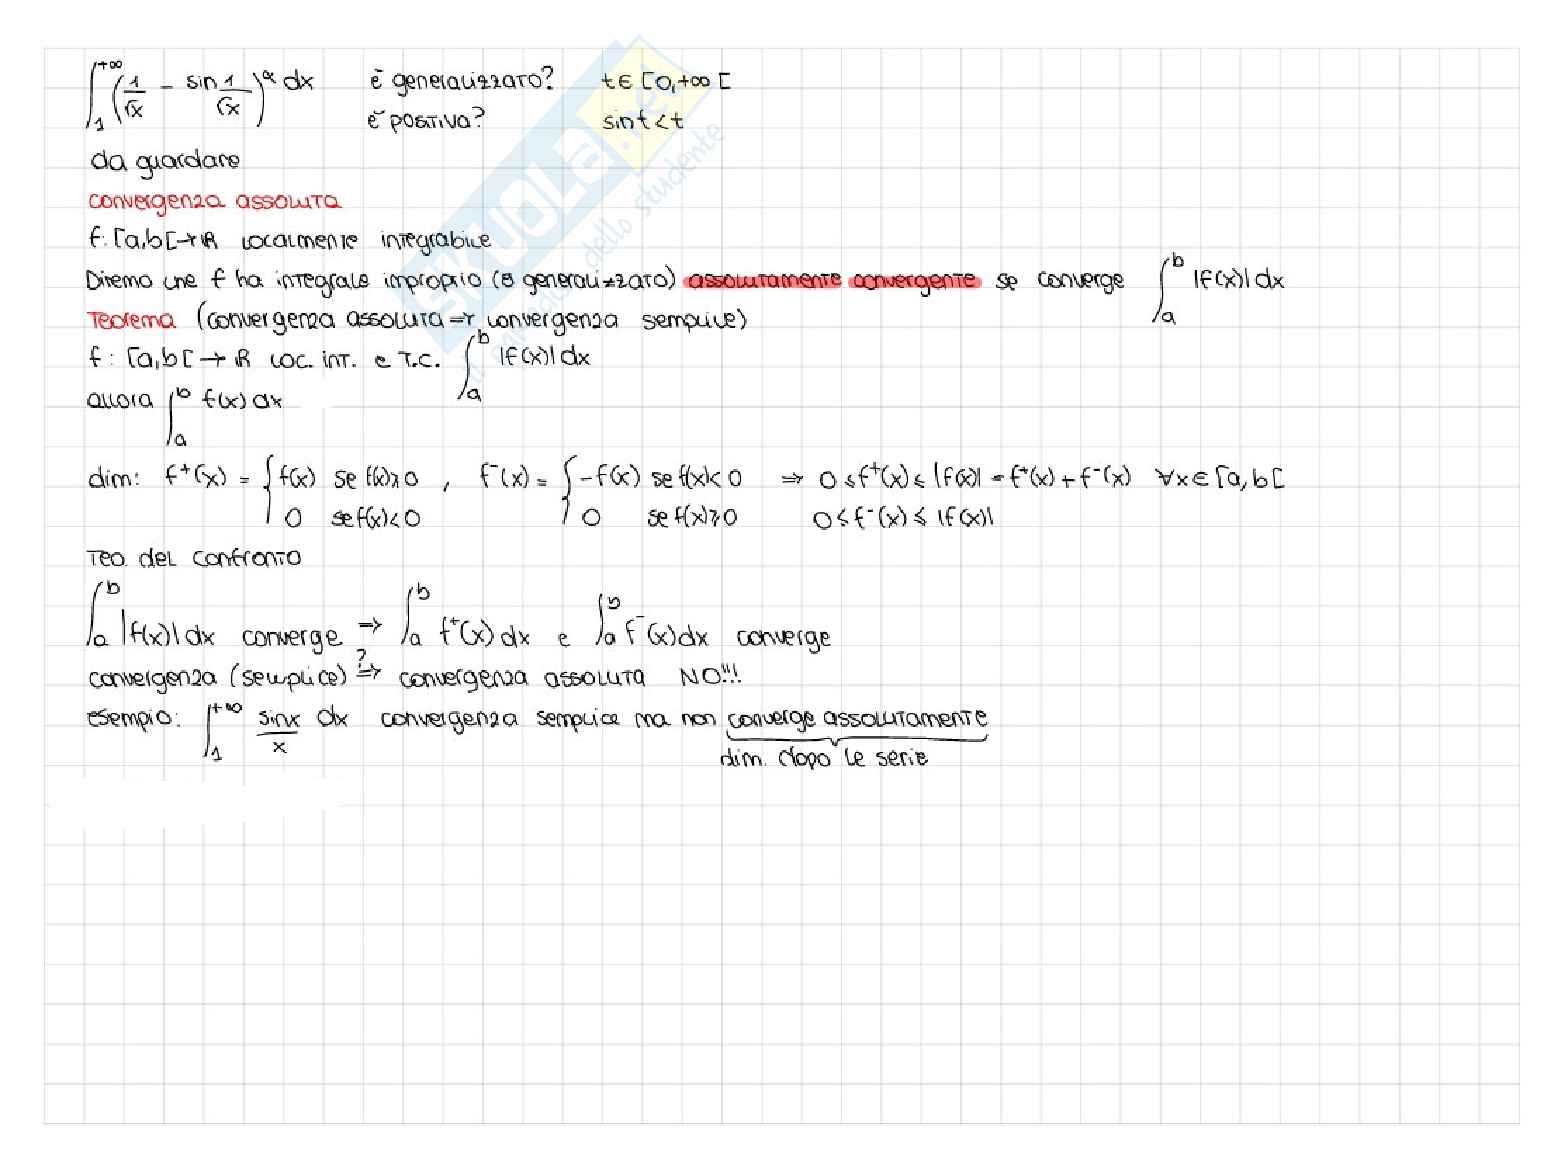 ∫₁^{+∞} (1/√x - sin 1/√x)^α dx è generalizzato? t∈[0,+∞[
è positiva? sint<t
da guardare
convergenza assoluta
f: [a,b[→ℝ localmente integrabile
Diremo che f ha integrale improprio (o generalizzato) assolutamente convergente se converge ∫ₐᵇ |f(x)| dx
Teorema (convergenza assoluta ⇒ convergenza semplice)
f: [a,b[→ℝ loc. int. e T.C. ∫ₐᵇ |f(x)| dx
allora ∫ₐᵇ f(x) dx
dim: f⁺(x) = { f(x) se f(x)≥0 , f⁻(x) = { -f(x) se f(x)<0 ⇒ 0≤f⁺(x)≤|f(x)| = f⁺(x)+f⁻(x) ∀x∈[a,b[
0 se f(x)<0 0 se f(x)≥0 0≤f⁻(x)≤|f(x)|
Teo. del confronto
∫ₐᵇ |f(x)| dx converge ⇒ ∫ₐᵇ f⁺(x) dx e ∫ₐᵇ f⁻(x) dx converge
convergenza (semplice) ?⇒ convergenza assoluta NO!!!
esempio: ∫₁^{+∞} sinx/x dx convergenza semplice ma non converge assolutamente
dim. dopo le serie
SKUOLA.net
dello studente